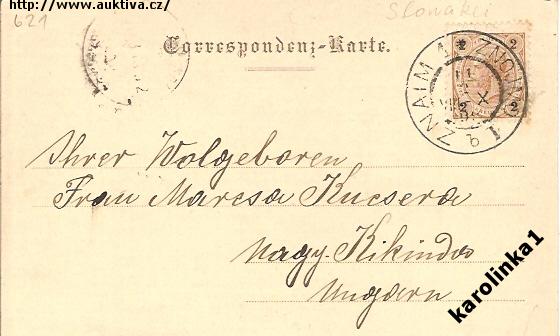 http://www.auktiva.cz/
621
Slowakei
Correspondenz-Karte.
2 2
2 2
ZNAIM 1 * ZNOJMO 1
b
Ihrer Wolgeboren
Frau Marcsa Kucsera
Nagy Kikinda
Ungarn
karolinka1